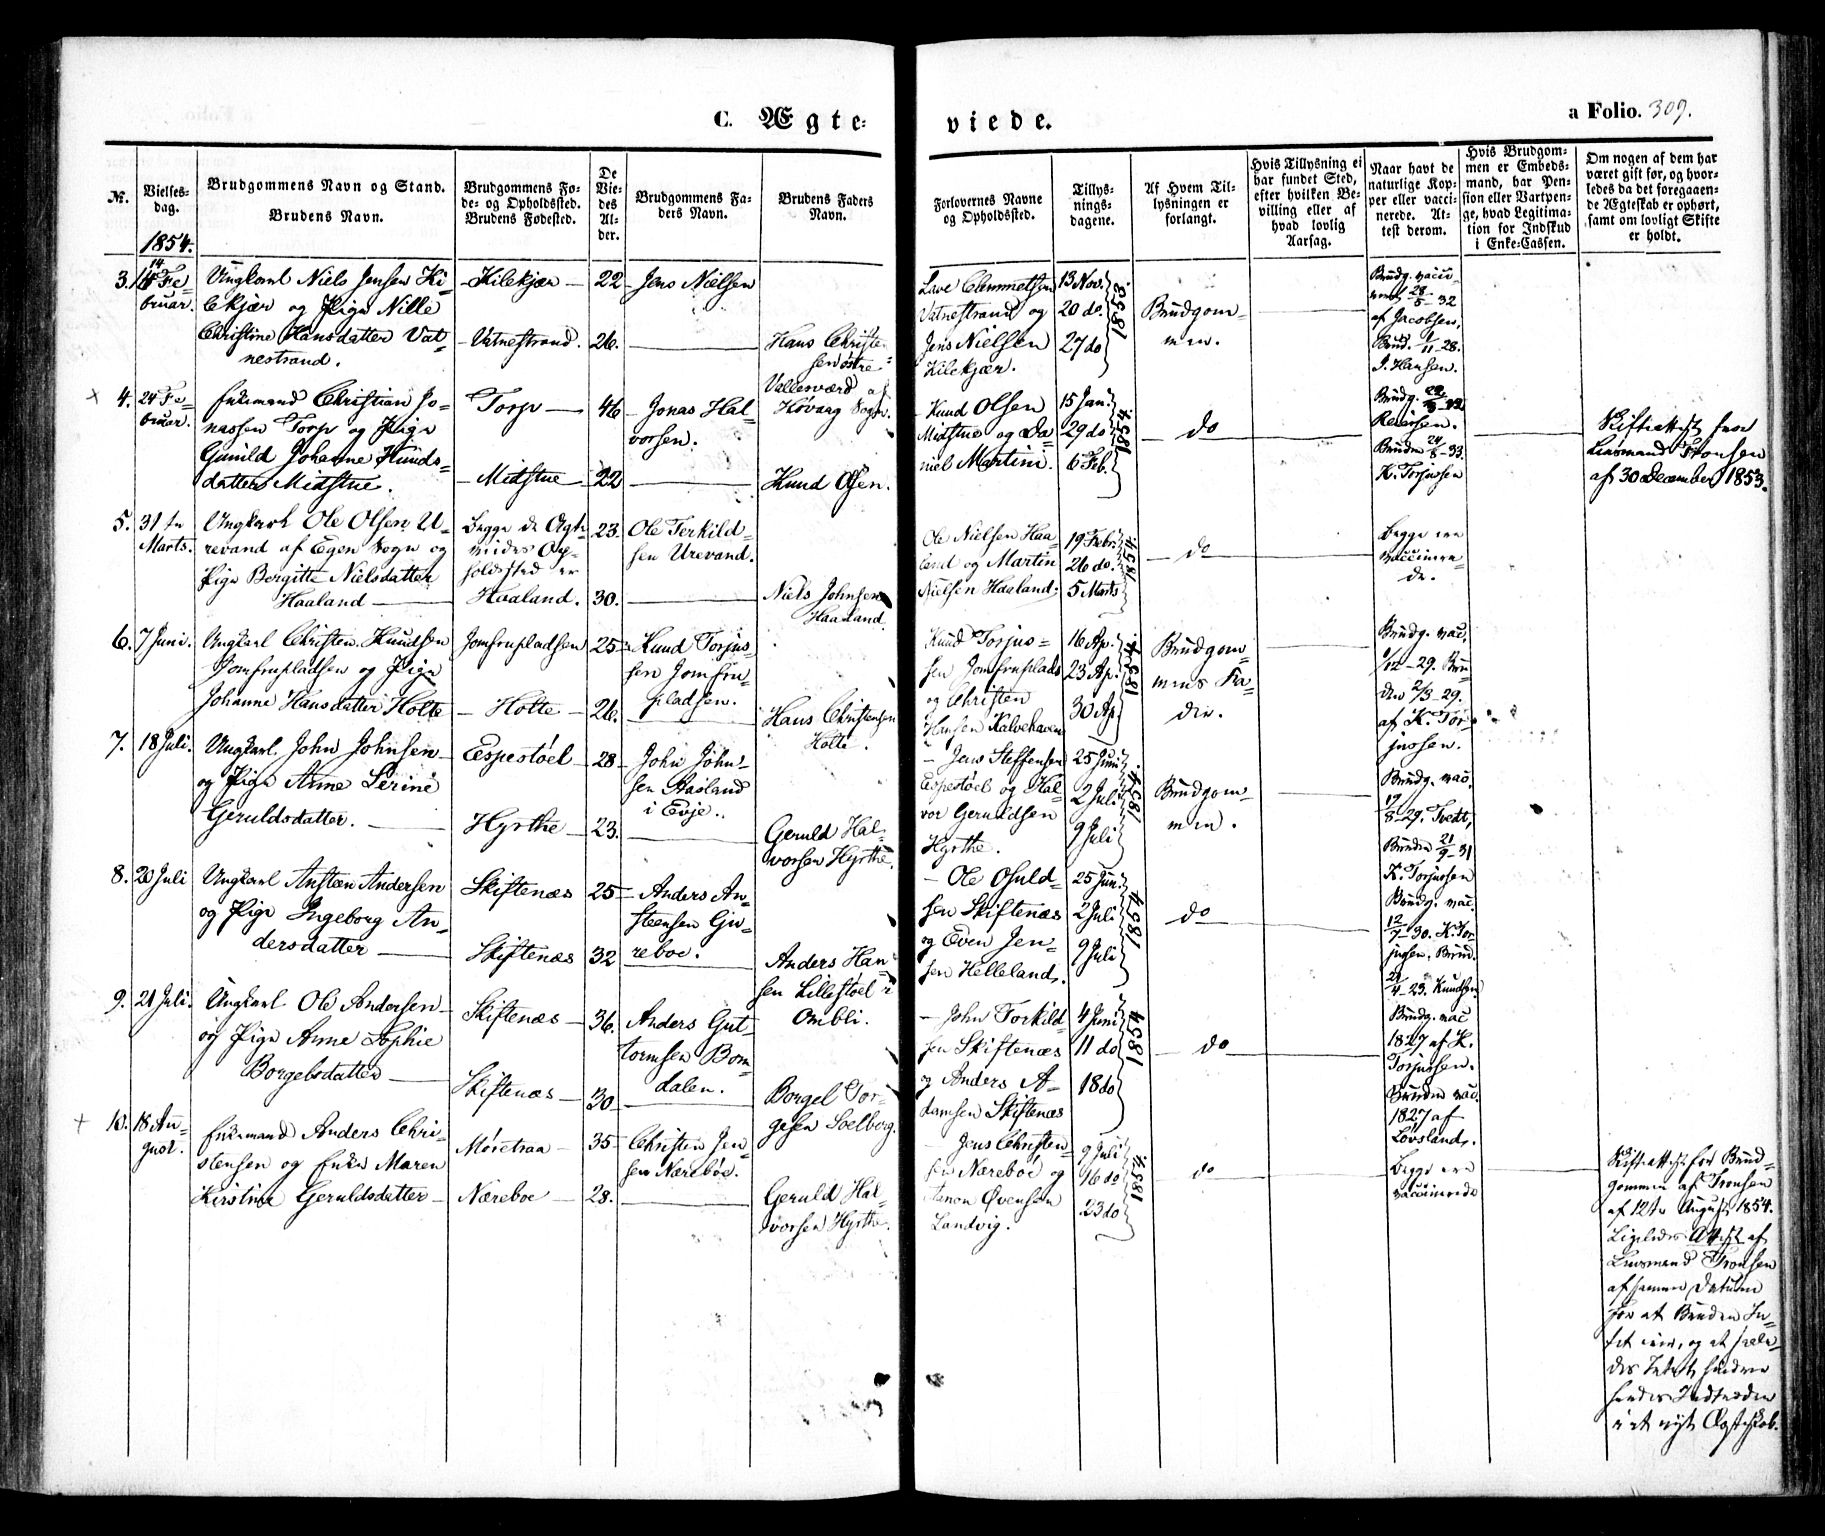 C. Ægte-
№.
Vielses-
dag.
Brudgommens Navn og Stand.
Brudens Navn.
Brudgommens Fø-
de- og Opholdsted.
Brudens Fødested.
De
Vie-
des
Al-
der.
Brudgommens Fa-
ders Navn.
Brudens Faders
Navn.
1854.
3. 14 Fe-
bruar.
Ungkarl Niels Jensen Ki-
lekjær og Pige Nille
Christine Hansdatter Vat-
nestrand.
Kilekjær 22
Vatnestrand. 26.
Jens Nielsen
Hans Christen-
sen østre
Vallesværd af
Høvaag Sogn.
4. 24 Fe-
bruar.
Enkemand Christian Jo-
nassen Torp og Pige
Gunild Johanne Knuds-
datter Midstue.
Torp 46
Midstue 22
Jonas Hal-
vorsen.
Knud Olsen.
5. 31te
Marts.
Ungkarl Ole Olsen U-
revand af Egen Sogn og
Pige Bergitte Nielsdatter
Haaland
Begge de Ægte-
viedes Op-
holdsted er
Haaland.
23.
30.
Ole Terkild-
sen Urevand.
Niels Johnsen
Haaland.
6. 7 Juni.
Ungkarl Christen Knudsen
Jomfrupladsen og Pige
Johanne Hansdatter Holte
Jomfrupladsen 25
Holte 26.
Knud Torjus-
sen Jomfru-
pladsen.
Hans Christensen
Holte.
7. 18 Juli.
Ungkarl John Johnsen
og Pige Anne Serine
Geruldsdatter.
Espestøel 28
Hyrthe 23.
John John-
sen Aasland
i Evje.
Geruld Hal-
vorsen Hyrthe.
8. 20 Juli
Ungkarl Ansteen Andersen
og Pige Ingeborg An-
dersdatter
Skiftenæs 25
Skiftenæs 32
Anders An-
steensen Gju-
reboe.
Anders Han-
sen Lillestøel i
Ombli.
9. 21 Juli.
Ungkarl Ole Andersen
og Pige Anne Sophie
Borgelsdatter
Skiftenæs 36.
Skiftenæs 30
Anders Gut-
tormsen Bom-
dalen.
Borgel Tor-
gesen Soelborg.
10. 18 Au-
gust.
Enkemand Anders Chri-
stensen og Enke Maren
Kirstine Geruldsdatter
Møretraa 35
Næreboe 28.
Christen Jen-
sen Næreboe.
Geruld Hal-
vorsen Hyrthe.
viede.
a Folio. 309.
Forlovernes Navne
og Opholdssted.
Tillys-
nings-
dagene.
Af Hvem Til-
lysningen er
forlangt.
Hvis Tillysning ei
har fundet Sted,
efter hvilken Be-
villing eller af
hvad lovlig
Aarsag.
Naar havt de
naturlige Kop-
per eller vacci-
nerede. At-
test derom.
Hvis Brudgom-
men er Embeds-
mand, har Pen-
sion eller Vartpen-
ge, hvad Legitima-
tion for Indskud
i Enke-Cassen.
Om nogen af dem har
været gift før, og hvor-
ledes da det foregaaen-
de Ægteskab er ophørt,
samt om lovligt Skifte
er holdt.
Lave Clemmetsen
Vatnestrand og
Jens Nielsen
Kilekjær.
13 Nov.
20 do.
27 do
1853.
Brudgom-
men.
Brudg. vacci-
28/5-32
af Jacobsen,
Brud. 1/11-28.
J. Hansen.
Knud Olsen
Midstue og Da-
niel Martini.
15 Jan.
29 do
6 Feb.
1854.
do
Brudg.
Reiersen.
Bruden 24/8-33.
K. Torjussen
Skifteattest fra
Lensmand Tronsen
af 30 December 1853.
Ole Nielsen Haa-
land og Martin
Nielsen Haaland.
19 Febr.
26 do.
5 Marts
1854.
do
Begge ere
vaccinere-
de.
Knud Torjus-
sen Jomfruplads
og Christen
Hansen Kalvehaven
16 Ap.
23 Ap.
30 Ap.
1854.
Brudgom-
mens Fa-
der.
Brudg. vac.
1/12-29. Bru-
den 2/8 29.
af K. Tor-
jussen.
Jens Steffensen
Espestøel og Hal-
vor Geruldsen
Hyrthe.
25 Juni
2 Juli
9 Juli
1854.
Brudgom-
men.
Brudg. vac.
19/8-29. Tvedt,
Bruden 21/9-31
K. Torjussen
Ole Osuld-
sen Skiftenæs
og Even Jen-
sen Helleland.
25 Jun.
2 Juli
9 Juli
1854
do
Brudg. vac.
12/7-30. K. Tor-
jussen. Brud.
Knudsen
John Torkild-
sen Skiftenæs
og Anders A-
damsen Skiftenæs
4 Juni
11 do
18 do
1854
do
Brudg. vac
1827 af K.
Torjussen.
Bruden vac.
1827 af
Løvsland.
Jens Christen-
sen Næreboe og
Øvensen
Landvig.
9 Juli
16 do
23 do
1854.
do
Begge ere
vaccinerede
Skifteattest for Brud-
gommen af Tronsen
af 12te August 1854.
Ligeledes Attest af
Lensmand Tronsen
af samme Datum
for at Bruden In-
tet eier, og at saale-
des Intet hindrer
hendes Indtræden
i et nyt Ægteskab.